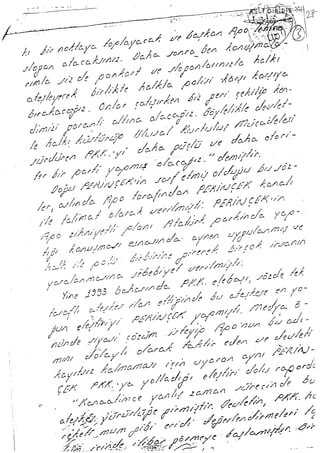 ki bir noktaya toplayacak ve başkan Apo lehine
slogan atacaksınız. Daha sonra ben konuşma-
rımla siz de pankart ve sloganlarınızla halkı
ateşleyerek birlikte halkla polisi karşı karşıya
bırakacağız. Onlar çatışırken biz geri çekilip ken-
dimizi garanti altına alacağız. Böylelikle devlet-
le halkı küstürüp Ulusal Kurtuluş Mücadelesi
sürdüren PKK.'yi daha güçlü ve daha otori-
ter bir parti yapmış olacağız." demiştir.
Doğu PERİNÇEK'in sarf etmiş olduğu bu söz-
ler, aslında Apo tarafından PERİNÇEK kanalı
ile talimat olarak verilmişti. PERİNÇEK'in
Apo zihniyetli planı Atatürk parkında yap-
tığı konuşması esnasında aynen uygulanmış ve
halk ile polis birbirine girerek birçok insanın
yaralanmasına sebebiyet verilmişti.
Yine 1993 baharında PKK. elebaşı, sözde tek
taraflı ateşkes ilan ettiğinde bu ateşkese en yo-
ğun eleştiriyi PERİNÇEK yapmıştı. Medya ö-
nünde siyasi çözüm isteyip Apo'nun bu adı-
mını dolaylı olarak taktir eden ve devleti
kayıtsız kalmaması için uyaran aynı PERİN-
ÇEK. PKK.'ya yolladığı eleştiri dolu raporda
"Kanaatimce yanlış zaman sürecinde bu
ateşkes yürürlüğe girmiştir. Devletin, PKK. h
mum gibi eridi değerlendirmeleri
içinde itibar görmeye başlamıştır. Bir